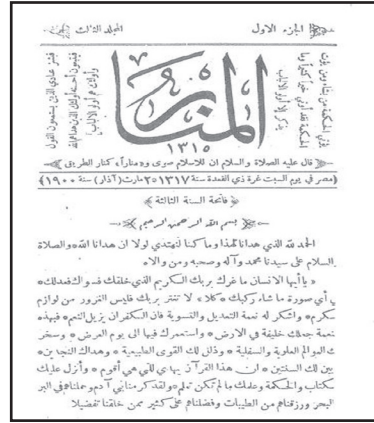 الجزء الاول
المجلد الثالث
يؤتي الحكمة من يشاء ومن يؤت
الحكمة فقد أوتي خيراً كثيراً وما
يذكر إلا أولو الالباب
المنار
١٣١٥
فبشر عبادي الذين يستمعون القول
فيتبعون أحسنه أولئك الذين هداهم الله
وأولئك هم أولو الالباب
قال عليه الصلاة والسلام ان للاسلام صوى و«مناراً» كمنار الطريق
(مصر في يوم السبت غرة ذي القعدة سنة ١٣١٧ ـ ٣ مارث (آذار) سنة ١٩٠٠)
فاتحة السنة الثالثة
بسم الله الرحمن الرحيم
الحمد لله الذي هدانا لهذا وما كنا لنهتدي لولا ان هدانا الله والصلاة
والسلام على سيدنا محمد وآله وصحبه ومن والاه
« يا أيها الانسان ما غرك بربك الكريم الذي خلقك فسواك فعدلك *
ي أي صورة ما شاء ركبك * كلا » لا تغتر بربك فليس الغرور من لوازم
سكرم * واشكر له نعمة التعديل والتسوية فان الكفران يزيل النعم * فبهذه
نعمة جعلك خليفة في الارض * واستعمرك فيها الى يوم العرض * وسخر
ك العوالم العلوية والسفلية * وذلل لك القوى الطبيعية * وهداك النجدين *
بين لك السنتين * ان هذا القرآن يهدي للتي هي أقوم * وأنزل عليك
كتاب والحكمة وعلمك ما لم تكن تعلم * ولقد كرمنا بني آدم وحملناهم في البر
البحر ورزقناهم من الطيبات وفضلناهم على كثير ممن خلقنا تفضيلا